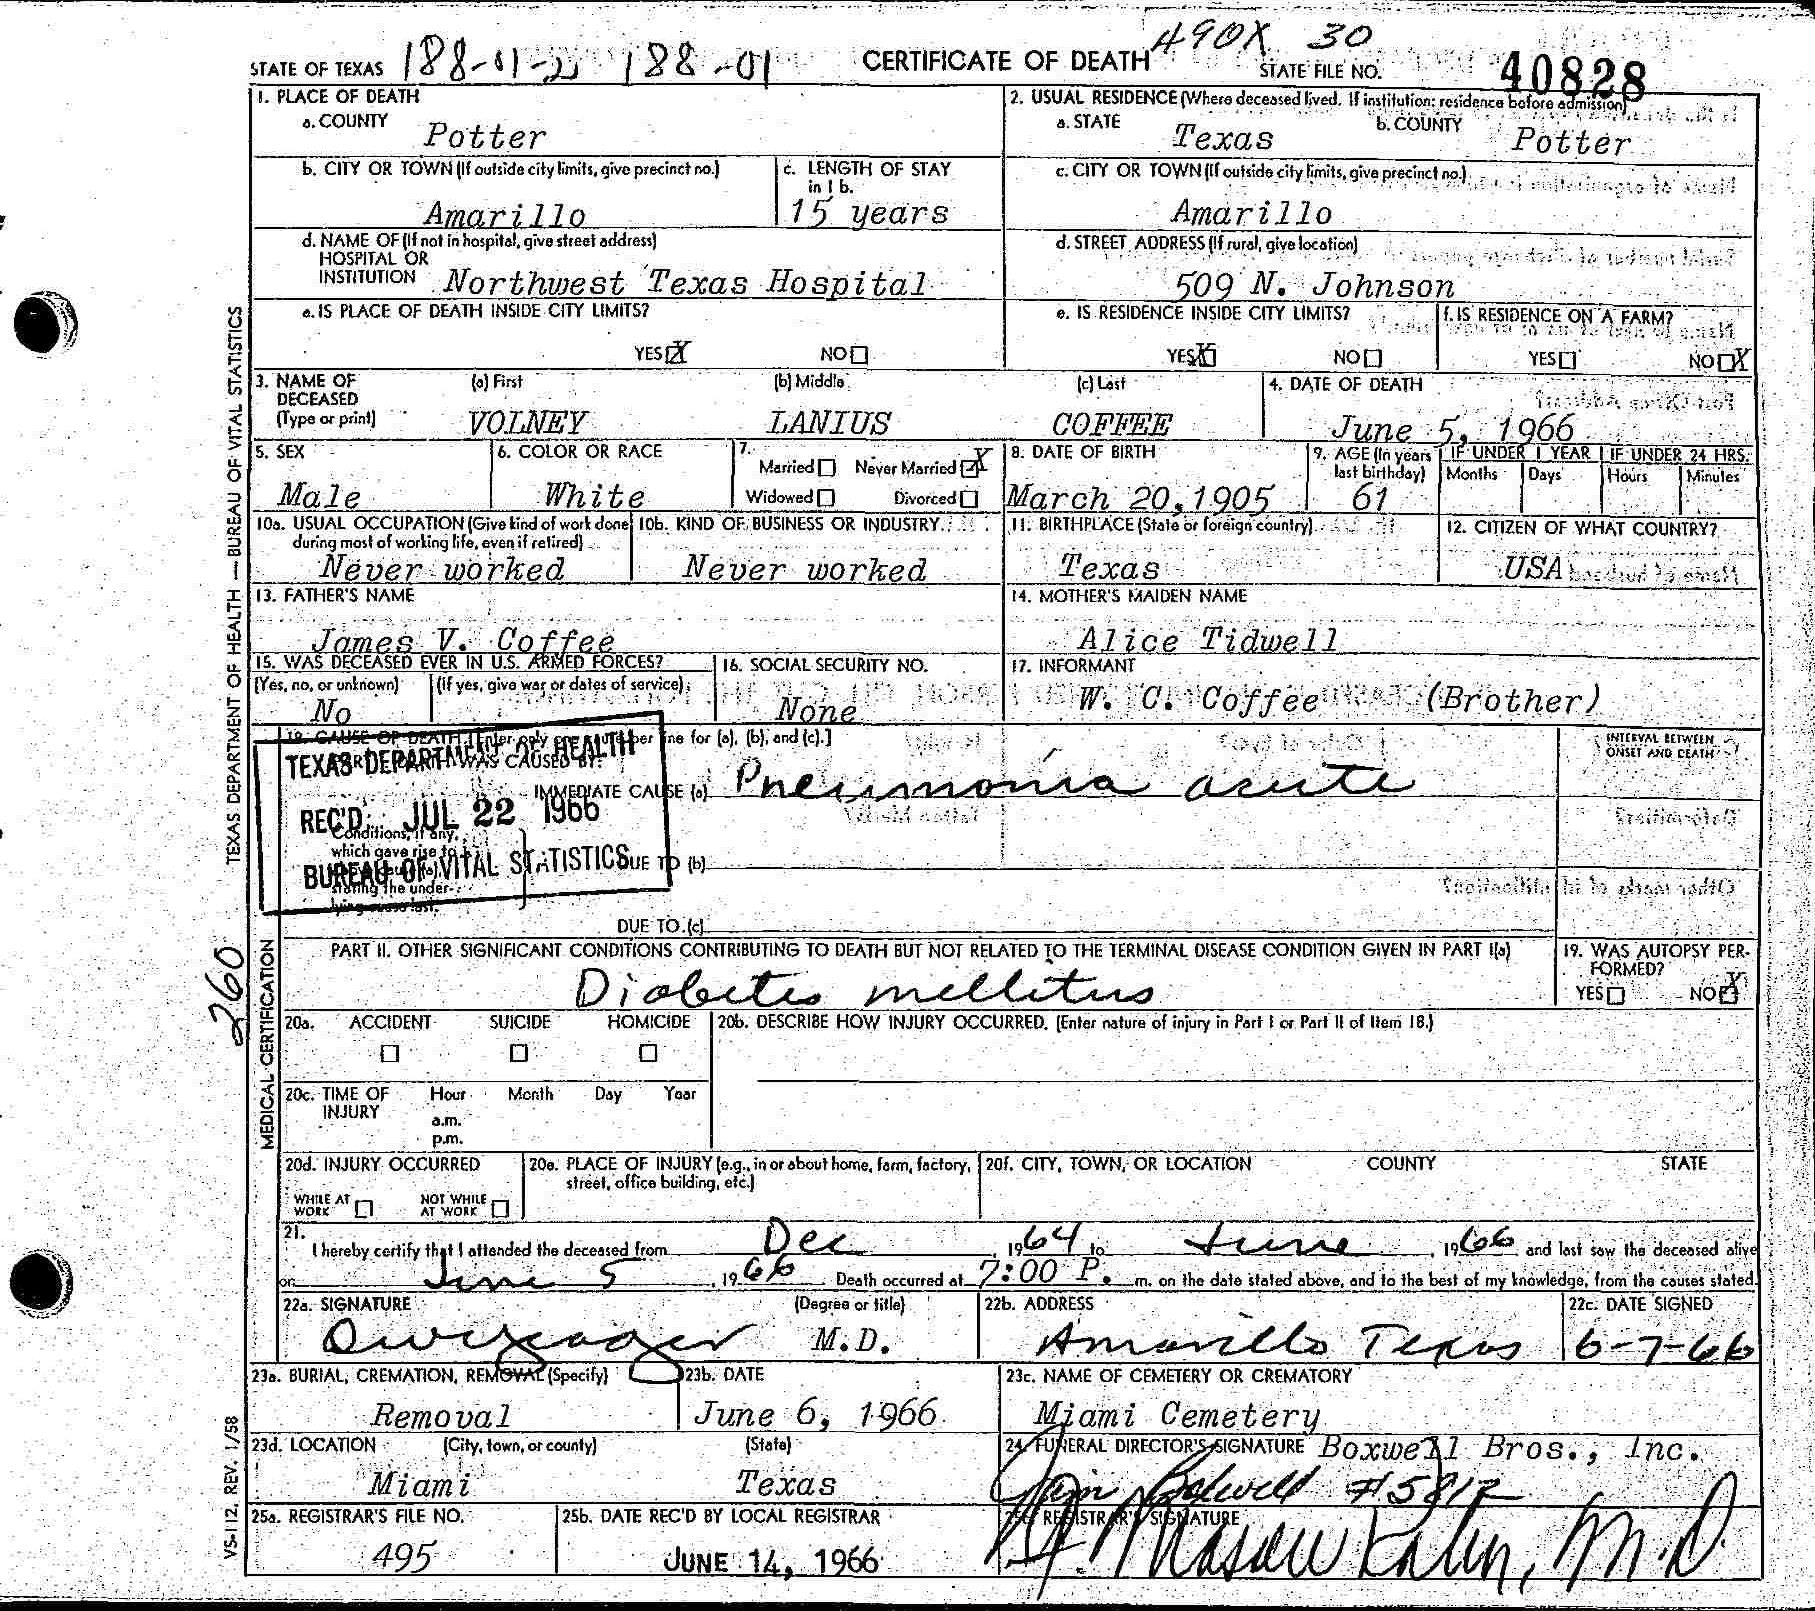 490X 30
STATE OF TEXAS 188-01-2 188-01 CERTIFICATE OF DEATH STATE FILE NO. 40828
1. PLACE OF DEATH
a. COUNTY Potter
2. USUAL RESIDENCE (Where deceased lived. If institution: residence before admission)
a. STATE Texas b. COUNTY Potter
b. CITY OR TOWN (If outside city limits, give precinct no.) Amarillo
c. LENGTH OF STAY in 1 b. 15 years
c. CITY OR TOWN (If outside city limits, give precinct no.) Amarillo
d. NAME OF (If not in hospital, give street address)
HOSPITAL OR
INSTITUTION Northwest Texas Hospital
d. STREET ADDRESS (If rural, give location)
509 N. Johnson
e. IS PLACE OF DEATH INSIDE CITY LIMITS?
YES X NO
e. IS RESIDENCE INSIDE CITY LIMITS?
YES X NO
f. IS RESIDENCE ON A FARM?
YES NO X
3. NAME OF DECEASED (Type or print)
(a) First (b) Middle (c) Last
VOLNEY LANIUS COFFEE
4. DATE OF DEATH
June 5, 1966
5. SEX
Male
6. COLOR OR RACE
White
7.
Married Never Married X
Widowed Divorced
8. DATE OF BIRTH
March 20, 1905
9. AGE (In years last birthday)
61
IF UNDER 1 YEAR IF UNDER 24 HRS.
Months Days Hours Minutes
10a. USUAL OCCUPATION (Give kind of work done during most of working life, even if retired)
Never worked
10b. KIND OF BUSINESS OR INDUSTRY
Never worked
11. BIRTHPLACE (State or foreign country)
Texas
12. CITIZEN OF WHAT COUNTRY?
USA
13. FATHER'S NAME
James V. Coffee
14. MOTHER'S MAIDEN NAME
Alice Tidwell
15. WAS DECEASED EVER IN U.S. ARMED FORCES?
(Yes, no, or unknown) (If yes, give war or dates of service)
No
16. SOCIAL SECURITY NO.
None
17. INFORMANT
W. C. Coffee (Brother)
18. CAUSE OF DEATH [Enter only one cause per line for (a), (b), and (c).]
WAS CAUSED BY:
IMMEDIATE CAUSE (a) Pneumonia acute
INTERVAL BETWEEN ONSET AND DEATH
TEXAS DEPARTMENT OF HEALTH
REC'D JUL 22 1966
BUREAU OF VITAL STATISTICS
Conditions, if any,
which gave rise to
stating the under-
lying cause last.
DUE TO (b)
DUE TO (c)
PART II. OTHER SIGNIFICANT CONDITIONS CONTRIBUTING TO DEATH BUT NOT RELATED TO THE TERMINAL DISEASE CONDITION GIVEN IN PART I(a)
Diabetes mellitus
19. WAS AUTOPSY PERFORMED?
YES NO X
20a. ACCIDENT SUICIDE HOMICIDE
20b. DESCRIBE HOW INJURY OCCURRED. (Enter nature of injury in Part I or Part II of Item 18.)
20c. TIME OF INJURY Hour Month Day Year
a.m.
p.m.
20d. INJURY OCCURRED
WHILE AT WORK NOT WHILE AT WORK
20e. PLACE OF INJURY (e.g., in or about home, farm, factory, street, office building, etc.)
20f. CITY, TOWN, OR LOCATION COUNTY STATE
21.
I hereby certify that I attended the deceased from Dec, 1964 to June, 1966 and last saw the deceased alive
on June 5, 1966. Death occurred at 7:00 P. m. on the date stated above, and to the best of my knowledge, from the causes stated.
22a. SIGNATURE (Degree or title)
M.D.
22b. ADDRESS
Amarillo Texas
22c. DATE SIGNED
6-7-66
23a. BURIAL, CREMATION, REMOVAL (Specify)
Removal
23b. DATE
June 6, 1966
23c. NAME OF CEMETERY OR CREMATORY
Miami Cemetery
23d. LOCATION (City, town, or county) (State)
Miami Texas
24. FUNERAL DIRECTOR'S SIGNATURE Boxwell Bros., Inc.
Boxwell #5812
25a. REGISTRAR'S FILE NO.
495
25b. DATE REC'D BY LOCAL REGISTRAR
JUNE 14, 1966
REGISTRAR'S SIGNATURE
M.D.
TEXAS DEPARTMENT OF HEALTH — BUREAU OF VITAL STATISTICS
260
MEDICAL CERTIFICATION
VS-112, REV. 1/58